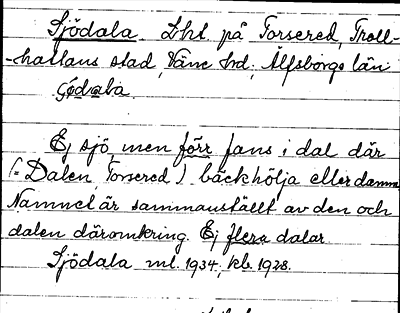 Sjödala. Lht på Torsered, Troll-
-hättans stad, Väne hd; Älfsborgs län
ʃö̀daba.
Ej sjö, men förr fans i dal där
(= Dalen, Torsered) bäckhölja eller damm.
Namnet är sammanställt av den och
dalen däromkring. Ej flera dalar.
Sjödala ml. 1934, kb. 1928.